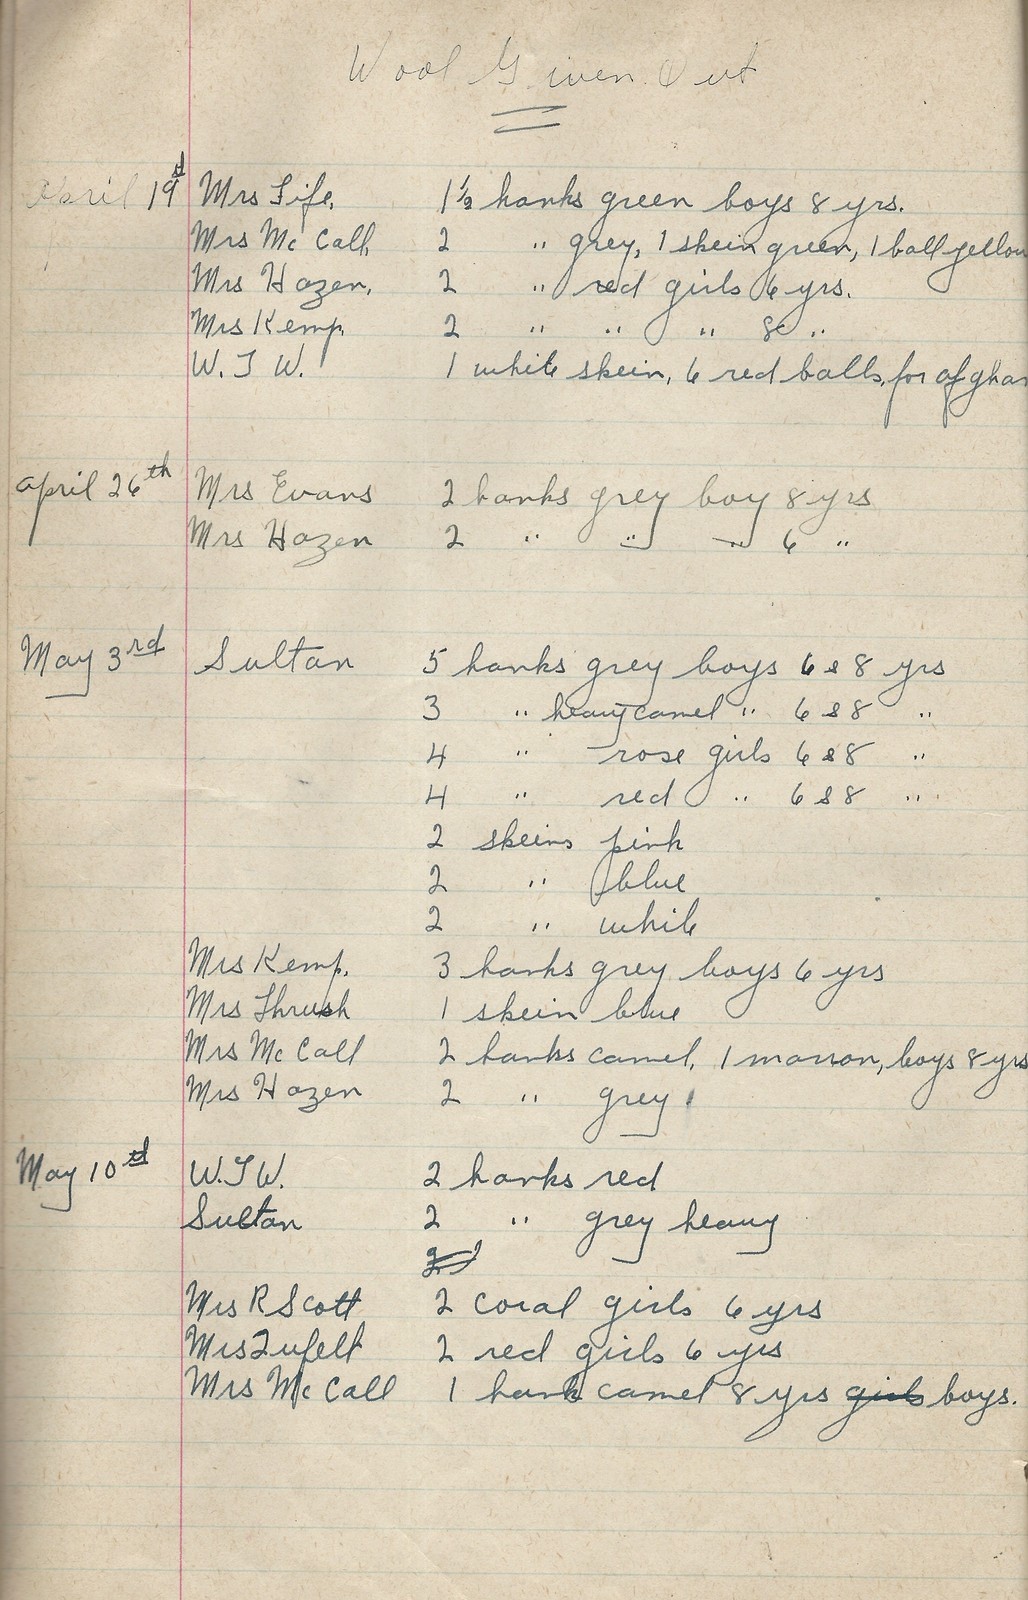 Wool Given Out
April 19th Mrs Fife, 1½ hanks green boys 8 yrs.
Mrs McCall, 2 " grey, 1 skein green, 1 ball yellow
Mrs Hazen, 2 " red girls 6 yrs.
Mrs Kemp, 2 " " " 8 "
W. I W. 1 white skein, 6 red balls, for afghan
April 26th Mrs Evans 2 hanks grey boy 8 yrs
Mrs Hazen 2 " " " 6 "
May 3rd Sultan 5 hanks grey boys 6 & 8 yrs
3 " heavy camel " 6 & 8 "
4 " rose girls 6 & 8 "
4 " red " 6 & 8 "
2 skeins pink
2 " blue
2 " white
Mrs Kemp. 3 hanks grey boys 6 yrs
Mrs Thrush 1 skein blue
Mrs McCall 2 hanks camel, 1 maroon, boys 8 yrs
Mrs Hazen 2 " grey
May 10th W. I W. 2 hanks red
Sultan 2 " grey heavy
2
Mrs R Scott 2 coral girls 6 yrs
Mrs Zufelt 2 red girls 6 yrs
Mrs McCall 1 hank camel 8 yrs girls boys.